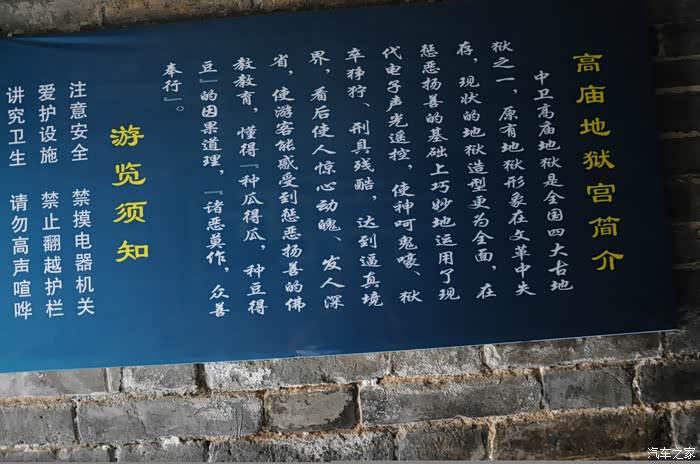 高庙地狱宫简介
中卫高庙地狱是全国四大古地
狱之一，原有地狱形象在文革中失
存，现状的地狱造型更为全面，在
惩恶扬善的基础上巧妙地运用了现
代电子声光遥控，使神呵鬼嚎、狱
卒狰狞、刑具残酷，达到逼真境
界，看后使人惊心动魄、发人深
省，使游客能感受到惩恶扬善的佛
教教育，懂得『种瓜得瓜，种豆得
豆』的因果道理，『诸恶莫作，众善
奉行』。
游览须知
注意安全 禁摸电器机关
爱护设施 禁止翻越护栏
讲究卫生 请勿高声喧哗
汽车之家